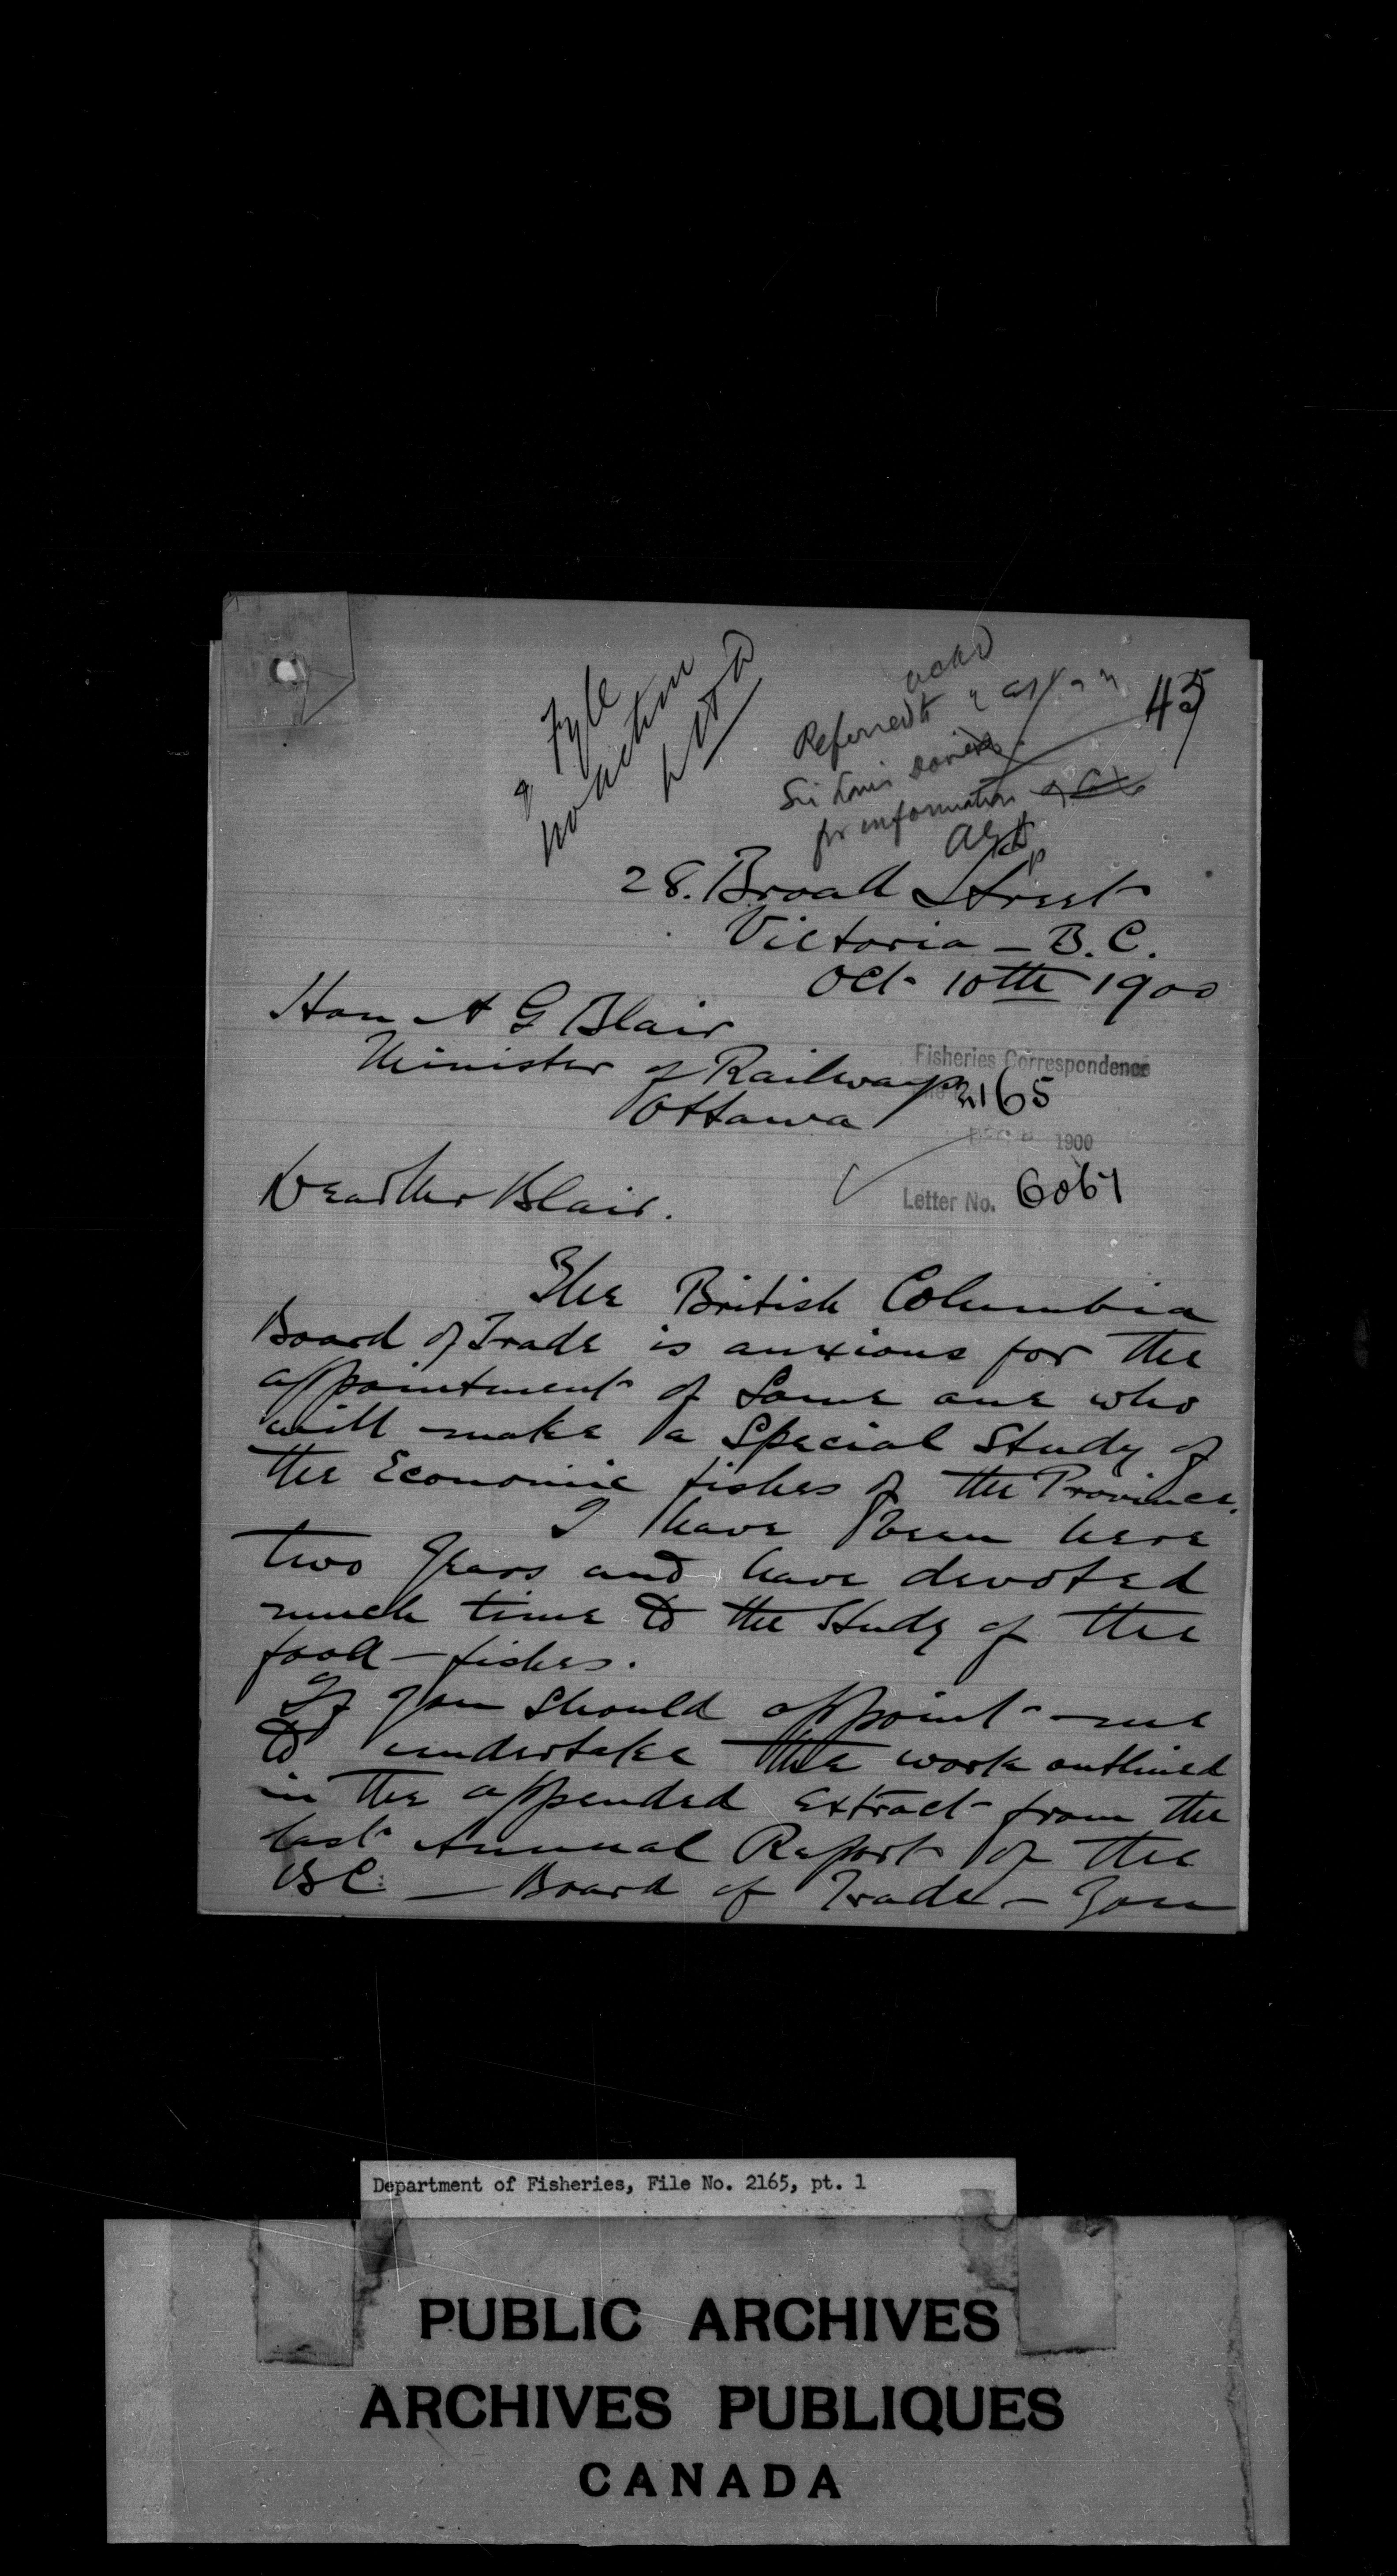 Fyle
no action
ackd
Referred to
Sir Louis Davies
for information
45
28. Broad Street
Victoria - B.C.
Oct- 10th 1900
Hon A G Blair
Minister of Railways
Ottawa
Fisheries Correspondence
2165
1900
Letter No. 6061
Dear Mr Blair.
The British Columbia
Board of Trade is anxious for the
appointment of some one who
will make a Special Study of
the Economic fishes of the Province.
I have been here
two years and have devoted
much time to the Study of the
food-fishes.
If you should appoint me
to undertake the work outlined
in the appended extract from the
last Annual Report of the
BC - Board of Trade - you
Department of Fisheries, File No. 2165, pt. 1
PUBLIC ARCHIVES
ARCHIVES PUBLIQUES
CANADA